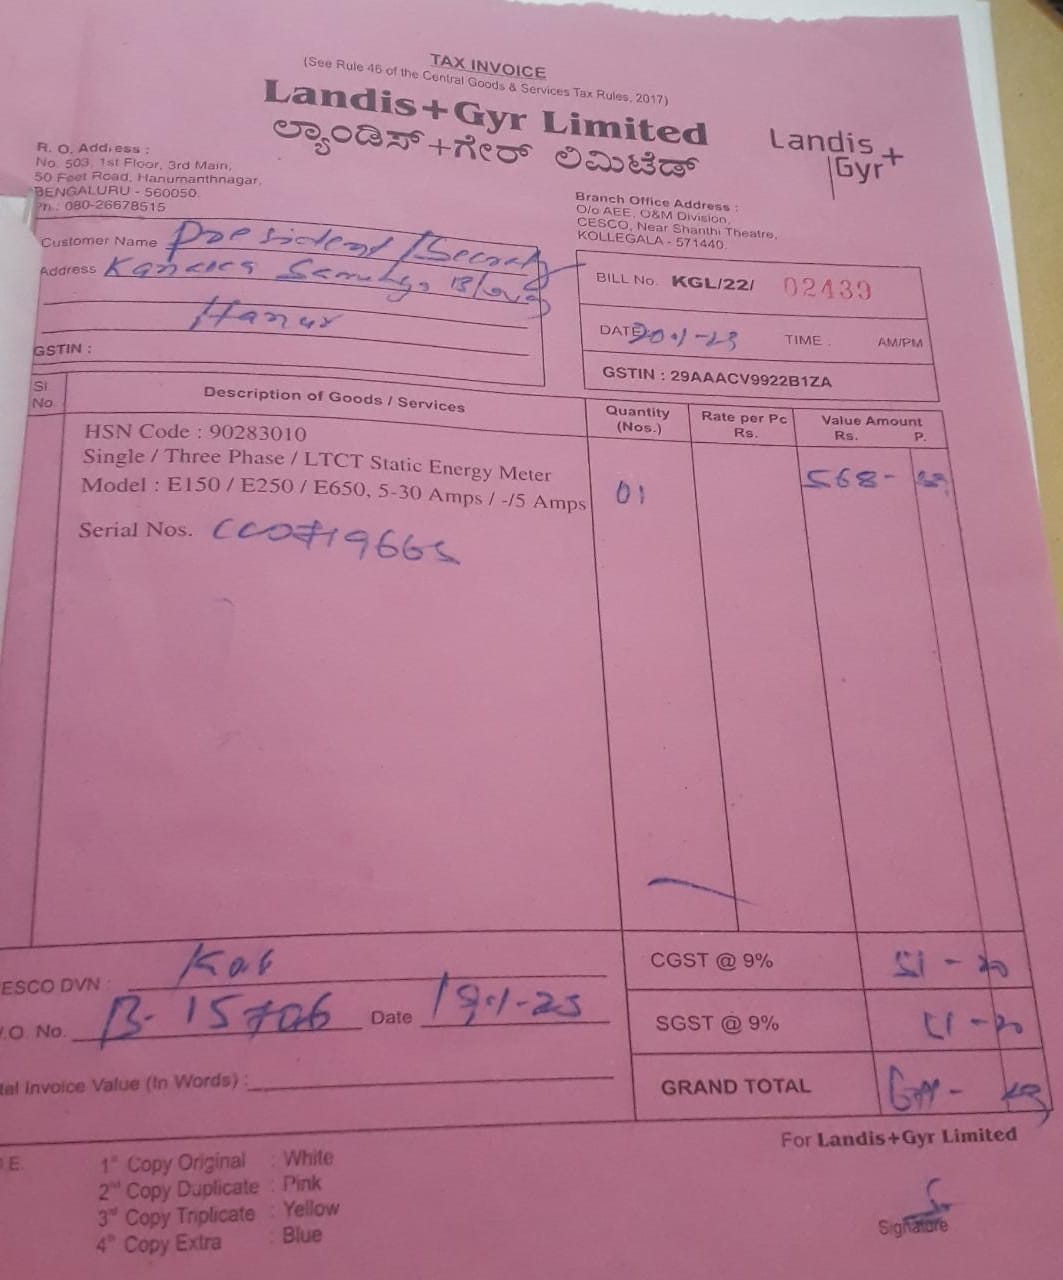 TAX INVOICE
(See Rule 46 of the Central Goods & Services Tax Rules, 2017)
Landis+Gyr Limited
ಲ್ಯಾಂಡಿಸ್+ಗೇರ್ ಲಿಮಿಟೆಡ್
Landis+
Gyr
R. O. Address :
No. 503, 1st Floor, 3rd Main,
50 Feet Road, Hanumanthnagar,
BENGALURU - 560050
Ph.: 080-26678515
Branch Office Address :
O/o AEE, O&M Division,
CESCO, Near Shanthi Theatre,
KOLLEGALA - 571440
Customer Name President/
Address
Hanur
GSTIN :
BILL No. KGL/22/ 02439
DATE 20-1-23 TIME : AM/PM
GSTIN : 29AAACV9922B1ZA
Sl. No. Description of Goods / Services Quantity (Nos.) Rate per Pc Rs. Value Amount Rs. P.
HSN Code : 90283010
Single / Three Phase / LTCT Static Energy Meter
Model : E150 / E250 / E650, 5-30 Amps / -/5 Amps 01 568-
Serial Nos.
ESCO DVN :
.O. No. B-15706 Date
CGST @ 9% 51-20
SGST @ 9% 51-20
tal Invoice Value (In Words) :
GRAND TOTAL
For Landis+Gyr Limited
1st Copy Original : White
2nd Copy Duplicate : Pink
3rd Copy Triplicate : Yellow
4th Copy Extra : Blue
Signature